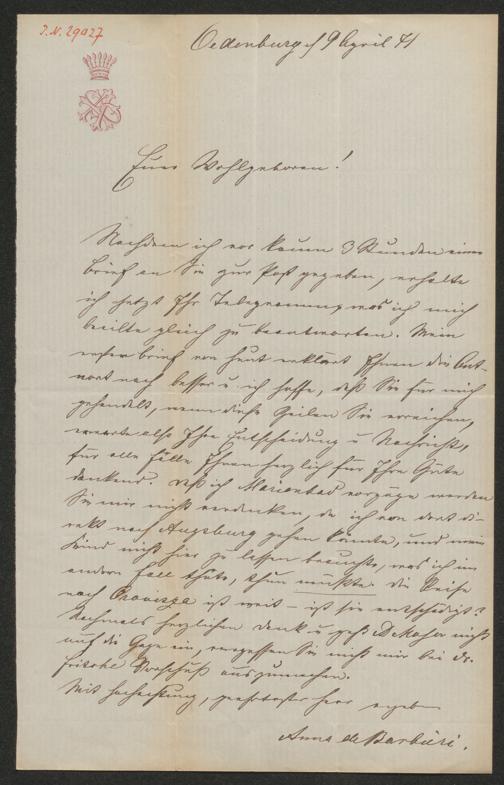 J.N. 29927
Oedenburg 9 April 71
Euer Wohlgeboren!
Nachdem ich vor kaum 3 Stunden einen
Brief an Sie zur Post gegeben, erhalte
ich jetzt Ihr Telegramm, was ich mich
beeilte gleich zu beantworten. Mein
erster Brief von heut erklärt Ihnen die Ant-
wort noch besser u ich hoffe, daß Sie für mich
gehandelt, wenn diese Zeilen Sie erreichen,
erwarte also Ihre Entscheidung u Nachricht,
für alle Fälle Ihnen herzlich für Ihre Güte
dankend. Daß ich Marienbad vorzüge werden
Sie mir nicht verdenken, da ich von dort di-
rekt nach Augsburg gehen könnte, und mein
Kind nicht hier zu lassen brauchte, was ich im
andern Fall thun müßte. Die Reise
nach ist weit – ist sie entschädigt?
Nochmals herzlichen Dank u geht nicht
auf die Gage ein, vergessen Sie nicht mir bei Dr.
Vorschuß auszumachen.
Mit Hochachtung, Herr ergeben
Anna de Barbieri.